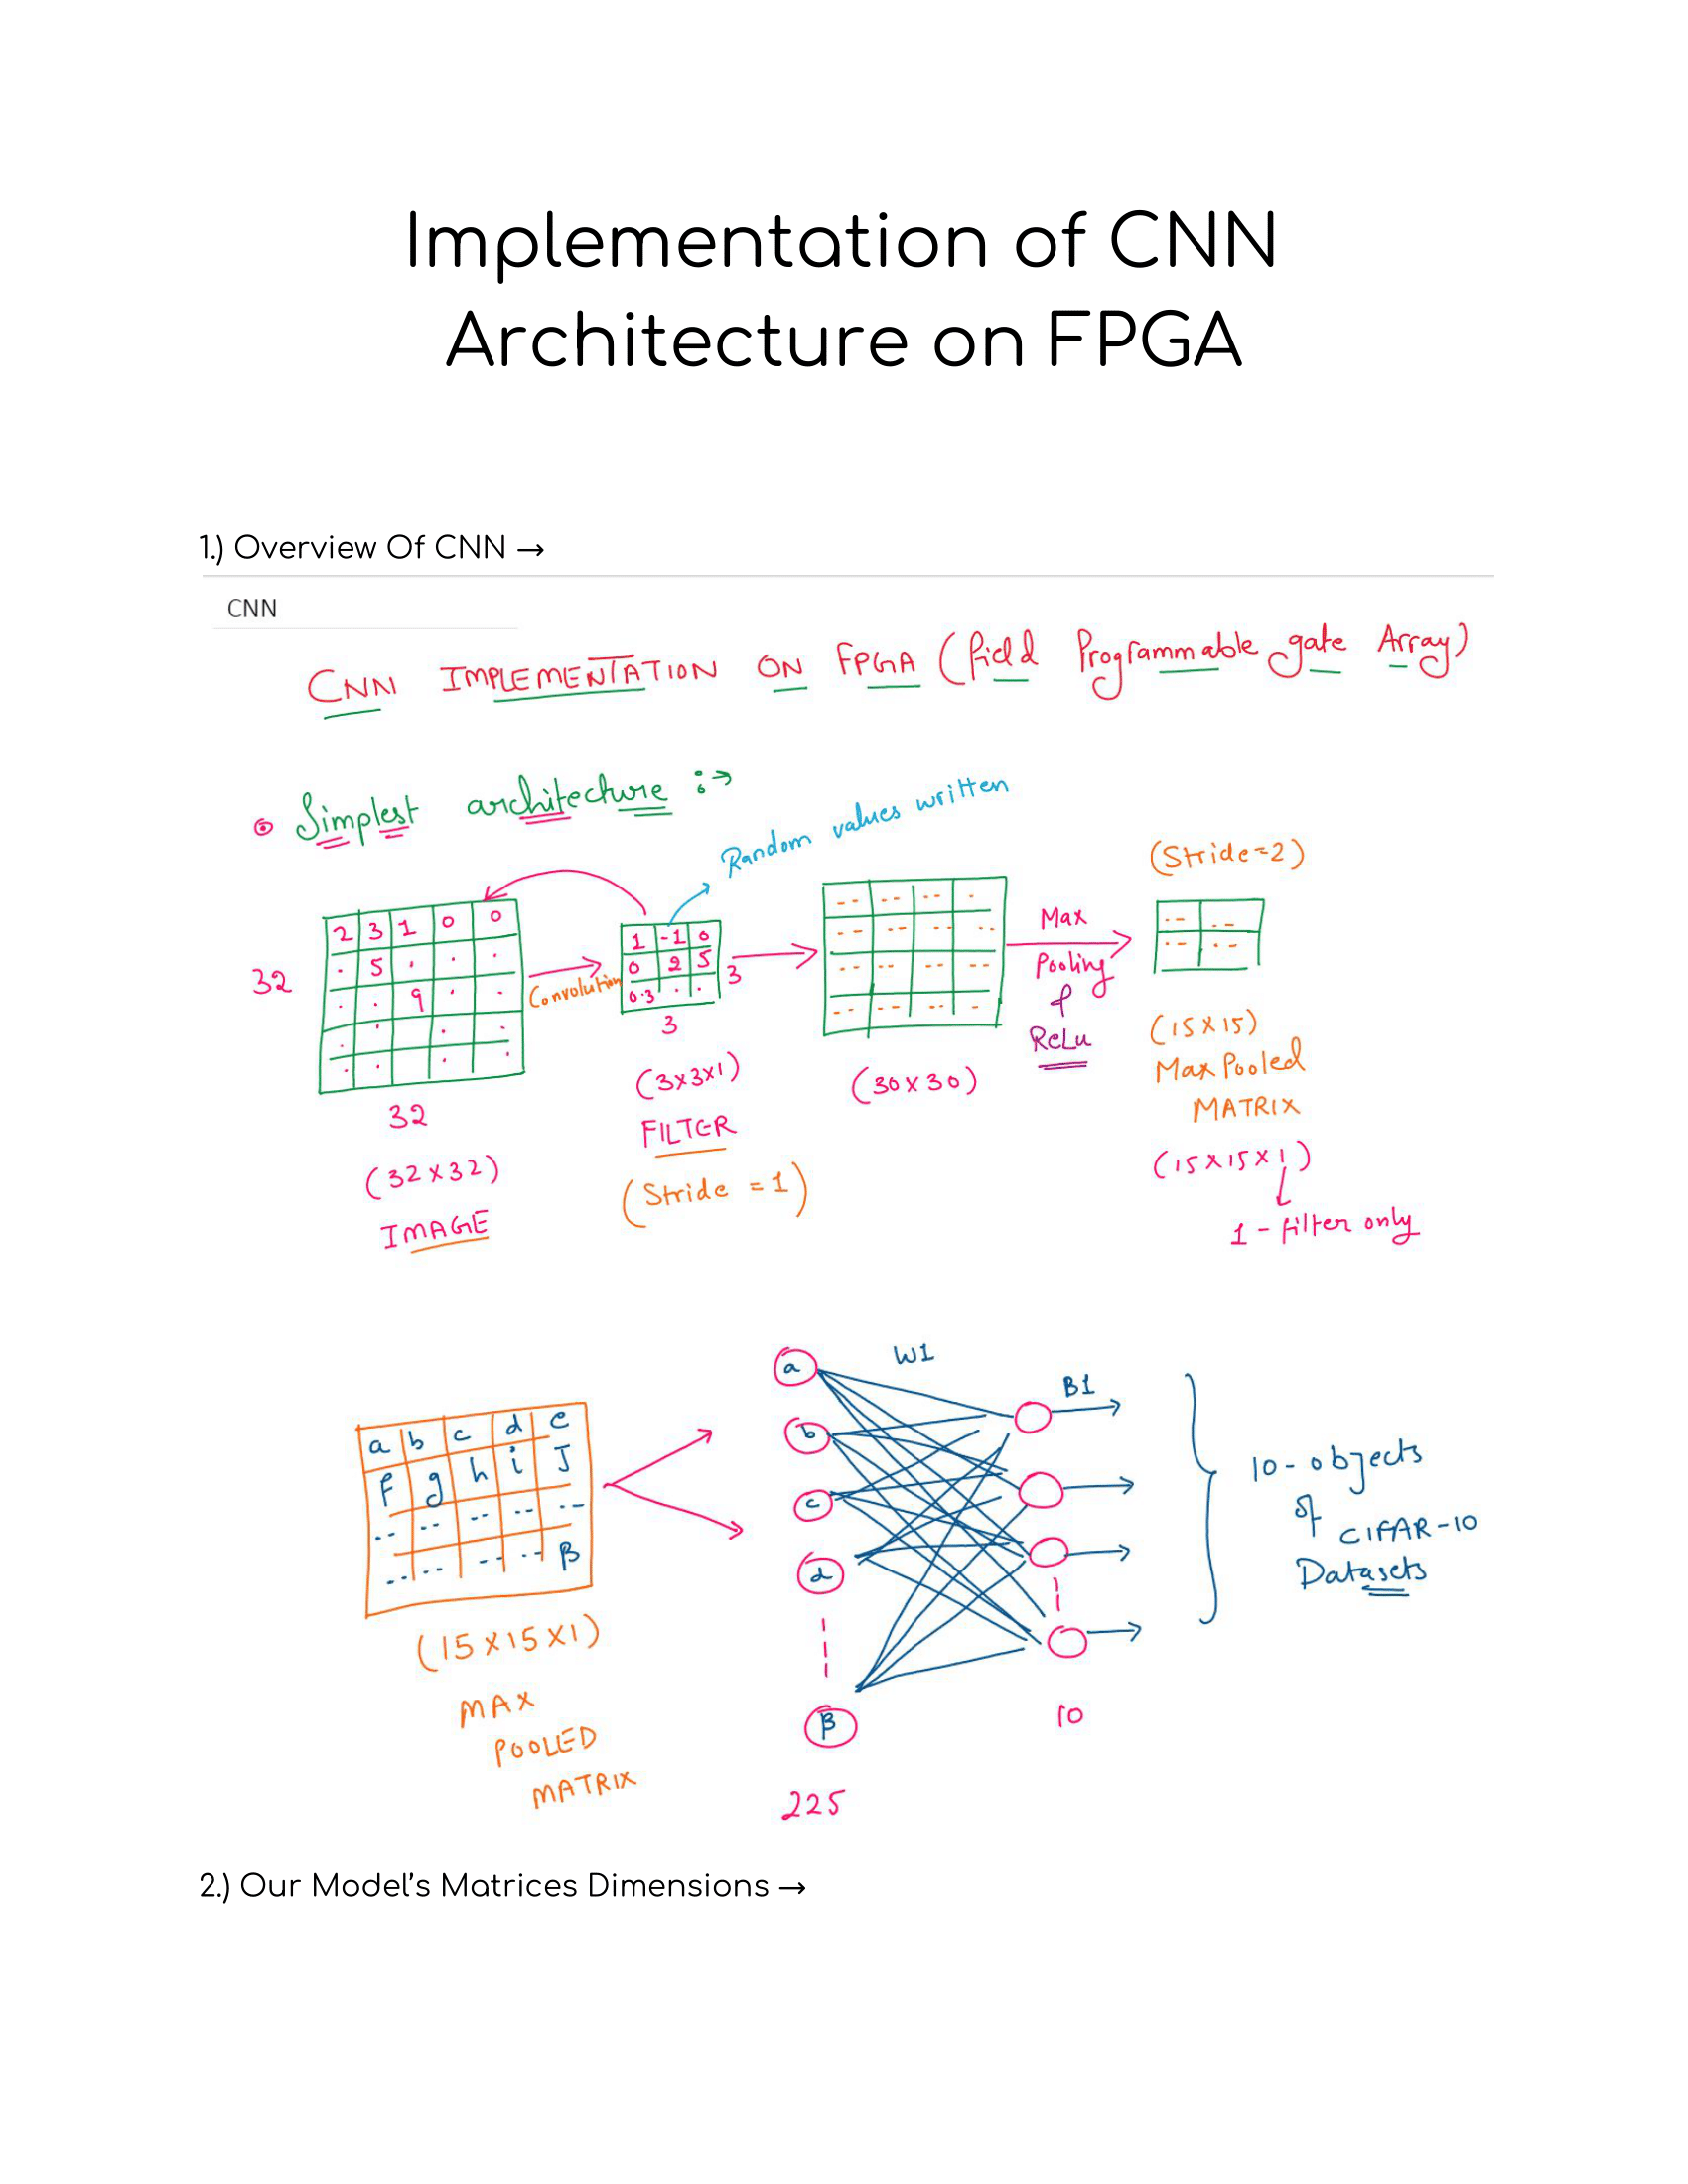 Implementation of CNN
Architecture on FPGA
1.) Overview Of CNN →
CNN
CNN IMPLEMENTATION ON FPGA (field Programmable gate Array)
Simplest architecture :→
Random values written
(Stride=2)
2 3 1 0 0
. 5 . . .
. . 9 . .
32
Convolution
1 -1 0
0 2 5
0.3 . .
3
3
Max
Pooling
&
ReLu
32
(32x32)
IMAGE
(3x3x1)
FILTER
(Stride = 1)
(30x30)
(15x15)
Max Pooled
MATRIX
(15x15x1)
1 - filter only
a b c d e
f g h i J
β
(15x15x1)
MAX
POOLED
MATRIX
a
b
c
d
β
225
W1
B1
10
10-objects
of
CIFAR-10
Datasets
2.) Our Model's Matrices Dimensions →